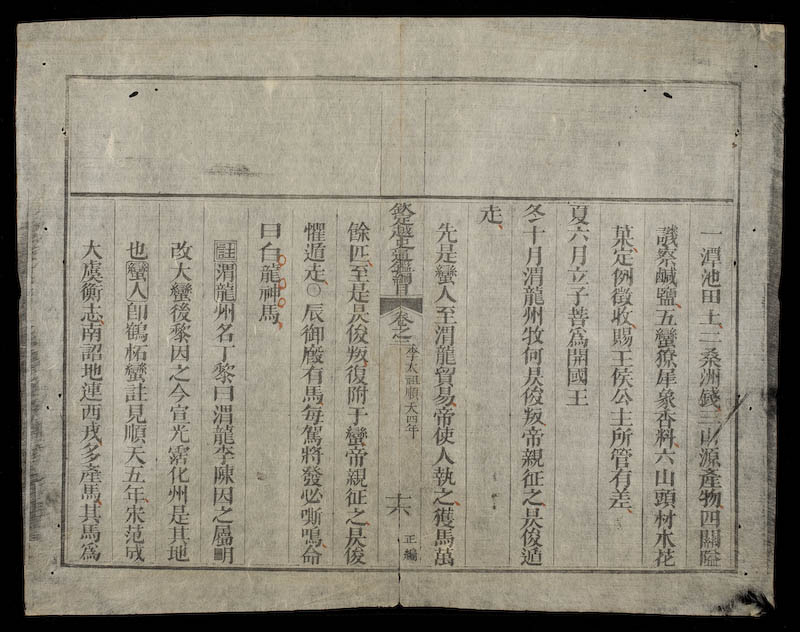 一潭池田土二桑洲錢三山源產物四關隘
譏察鹹鹽五蠻獠犀象香料六山頭材木花
菓定例徵收賜王侯公主所管有差
夏六月立子菩爲開國王
冬十月渭龍州牧何㫷俊叛帝親征之㫷俊遁
走
先是蠻人至渭龍貿易帝使人執之獲馬萬
欽定越史通鑑綱目 卷之三 李太祖順天四年 十六 正編
餘匹至是㫷俊叛復附于蠻帝親征之㫷俊
懼遁走○辰御廄有馬每駕將發必嘶鳴命
曰白龍神馬
註渭龍州名丁黎曰渭龍李陳因之屬明
改大蠻後黎因之今宣光霑化州是其地
也蠻人卽鶴柘蠻註見順天五年宋范成
大虞衡志南詔地連西戎多產馬其馬爲